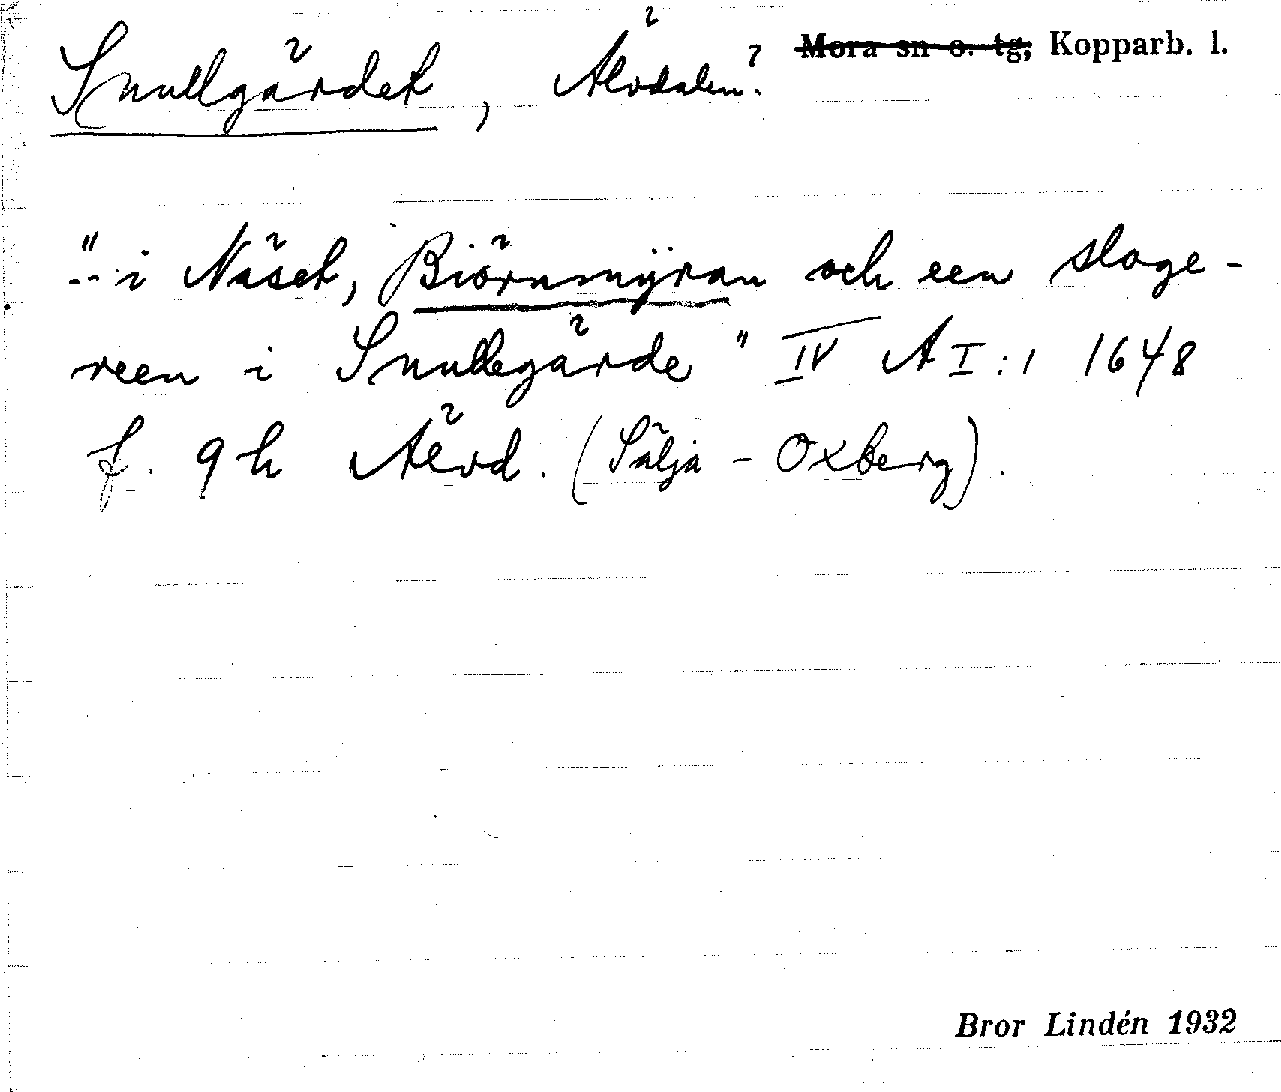 Snullgärdet, Älvdalen? Mora sn o. tg, Kopparb. l.
"-- i Näset, Biörnmÿran och een sloge-
reen i Snullegärde" IV A I:1 1648
f. 9 h Älvd. (Sälja - Oxberg).
Bror Lindén 1932